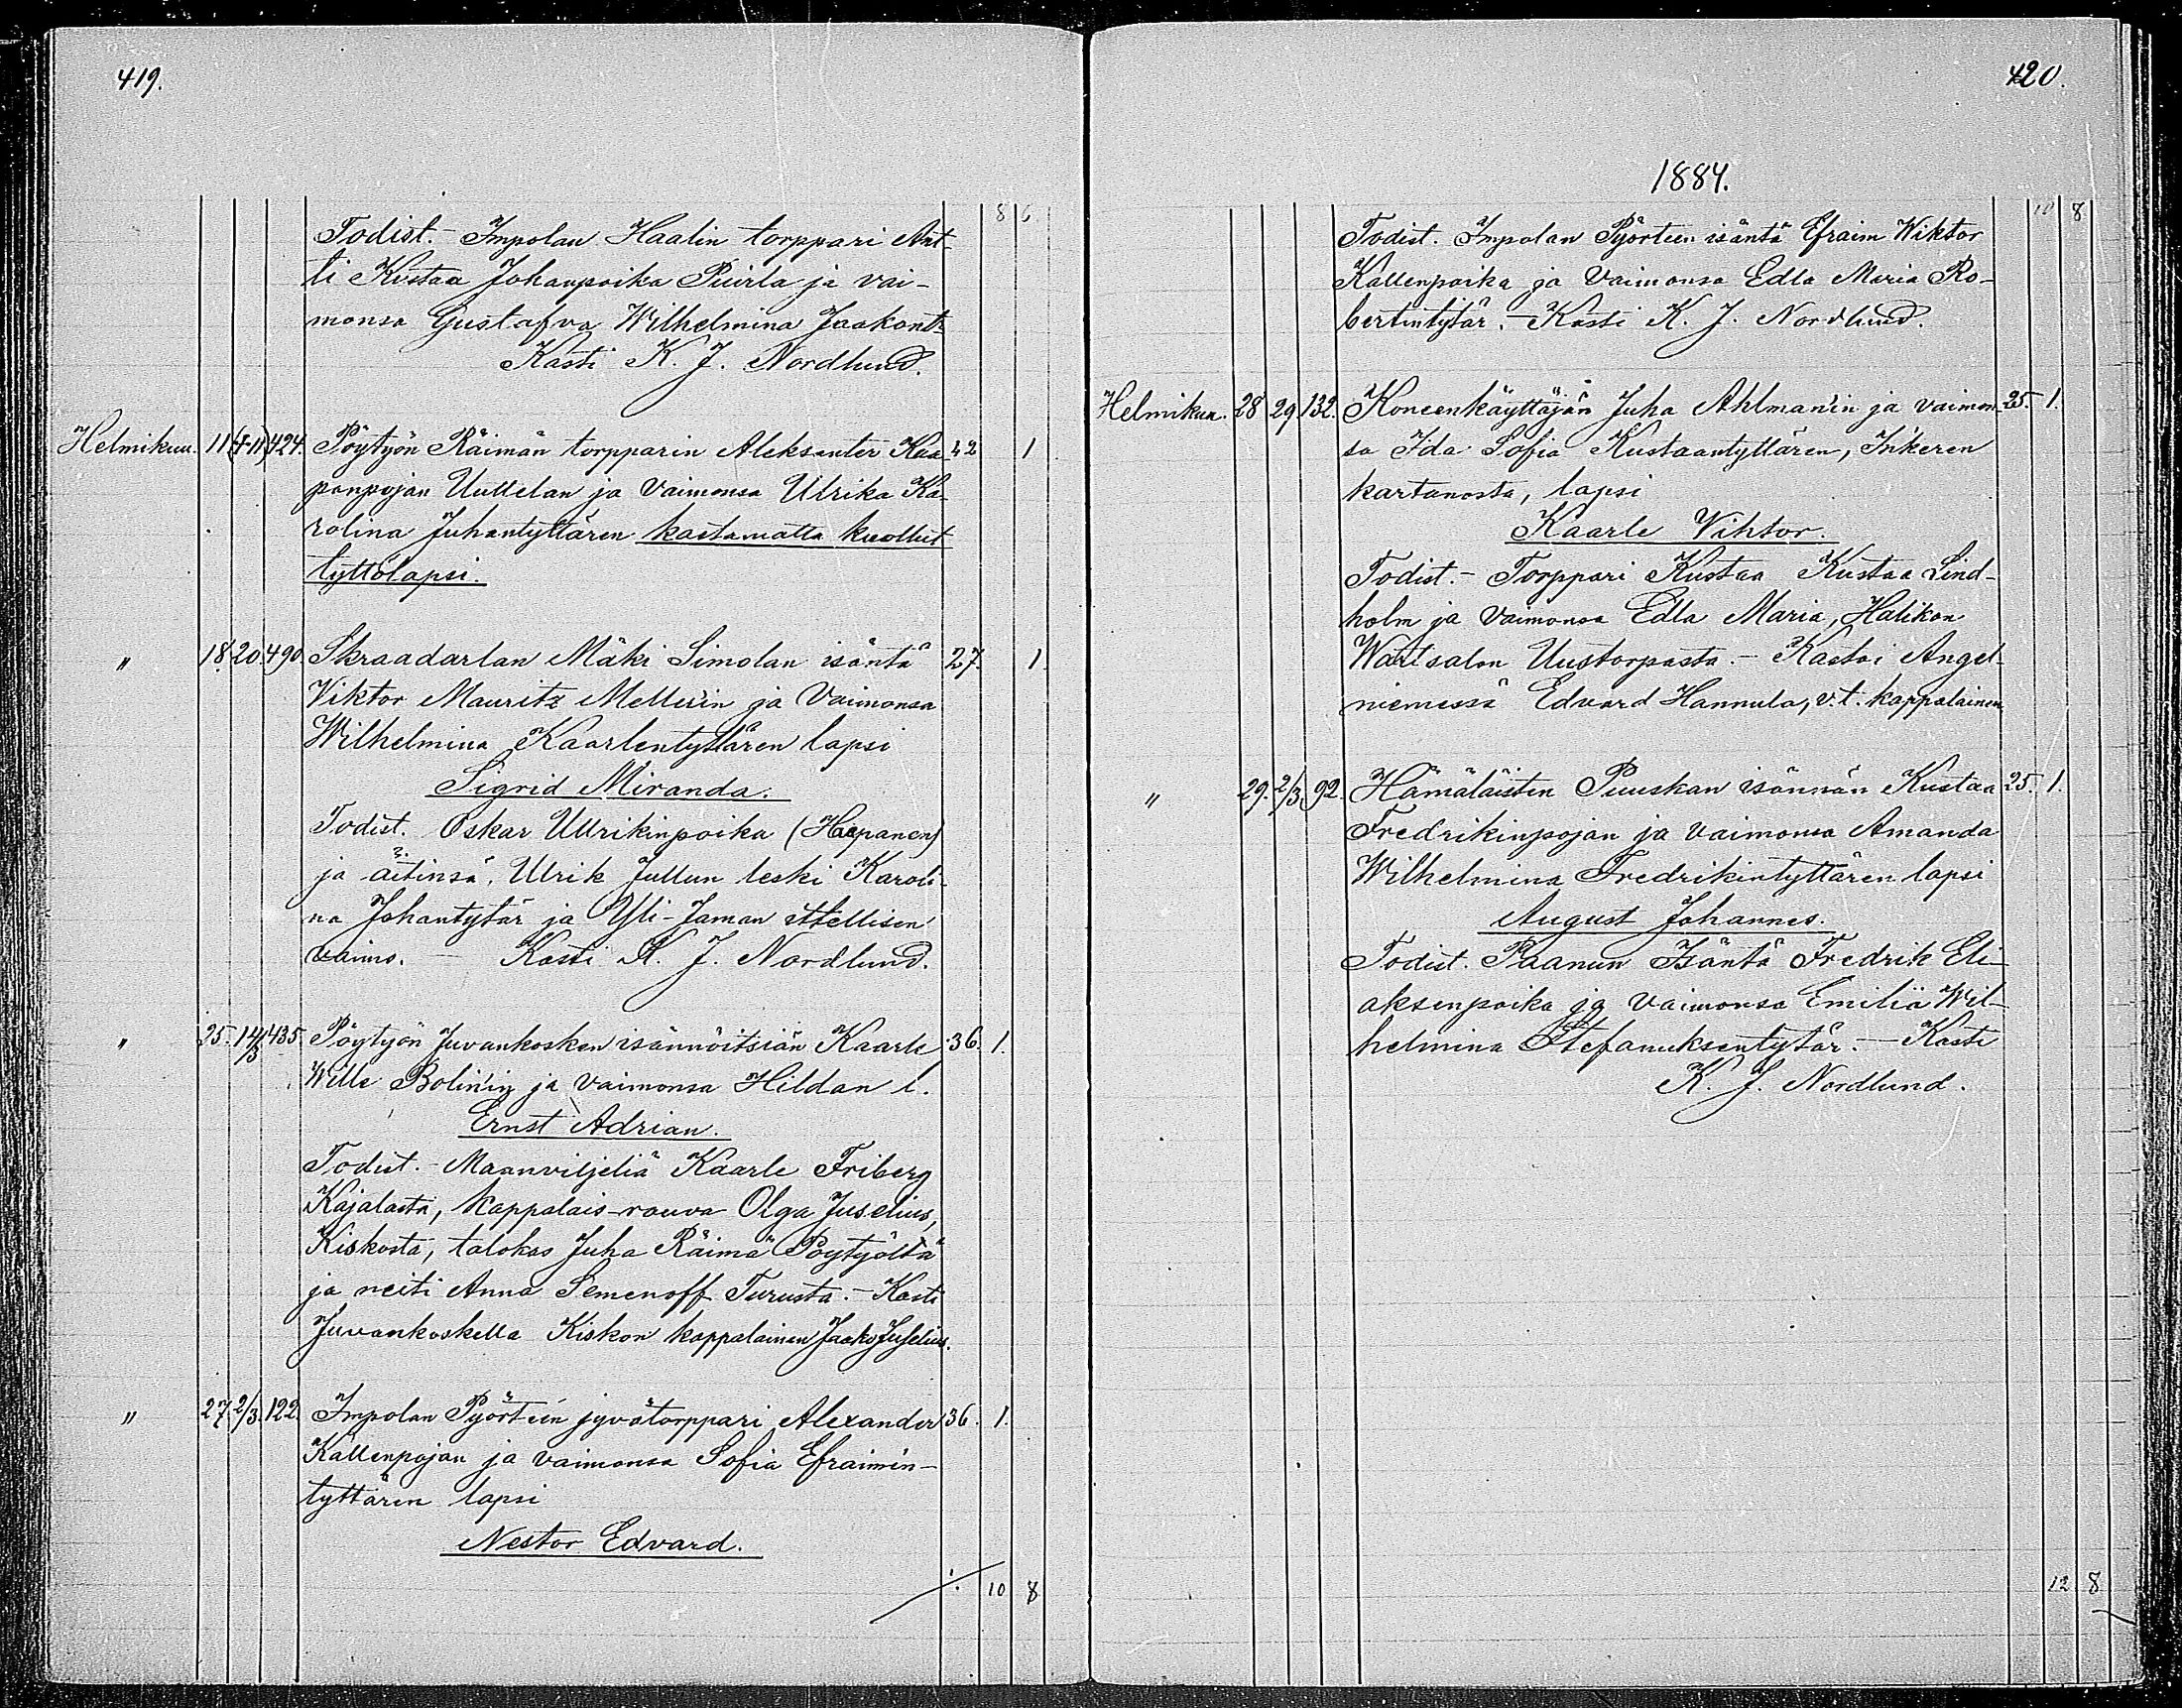 419.
8 6
Todist. - Impolan Haalin torppari Ant-
ti Kustaa Johanpoika Puirla ja vai-
monsa Gustafva Wilhelmina Jaakont:
Kasti K. J. Nordlund.
Helmikuu. 11 (†11) 424. Pöytyön Räimän torpparin Aleksanter Kaa- 42 1
panpojan Uullelan ja vaimonsa Ulrika Ka-
rolina Juhantyttären kastamatta kuollut
tyttölapsi.
" 18. 20. 490. Skraadarlan Mäki Simolan isäntä 27. 1.
Viktor Mauritz Mellerin ja vaimonsa
Wilhelmina Kaarlentyttären lapsi
Sigrid Miranda.
Todist. Oskar Ullrikinpoika (Haapanen)
ja äitinsä, Ulrik Jullun leski Karoli-
na Johantytär ja Yli-Jaman ittellisen
vaimo. - Kasti K. J. Nordlund.
" 25. 14/3 435. Pöytyön Juvankosken isännöitsiän Kaarle 36. 1.
Wille Bolin'in ja vaimonsa Hildan l.
Ernst Adrian.
Todist. - Maanviljeliä Kaarle Friberg
Kajalasta, kappalais-rouva Olga Juselius,
Kiskosta, talokas Juha Räimä Pöytyöltä
ja neiti Anna Semenoff Turusta. - Kasti
Juvankoskella Kiskon kappalainen Jaako Juselius.
" 27. 2/3. 122. Impolan Pyörteen jyvätorppari Alexander 36. 1.
Kallenpojan ja vaimonsa Sofia Efraimin-
tyttären lapsi
Nestor Edvard.
10 8
420.
1884.
10 8
Todist. Impolan Pyörteen isäntä Efraim Wiktor
Kallenpoika ja vaimonsa Edla Maria Ro-
bertintytär. - Kasti K. J. Nordlund.
Helmikuu. 28 29 132. Koneenkäyttäjän Juha Ahlman'in ja vaimon- 25. 1.
sa Ida Sofia Kustaantyttären, Inkeren
kartanosta, lapsi
Kaarle Vihtor.
Todist. - Torppari Kustaa Kustaa Lind-
holm ja vaimonsa Edla Maria, Halikon
Wartsalon Uustorpasta. - Kastoi Angel-
niemessä Edvard Hannula, v.t. kappalainen
" 29. 2/3. 92. Hämäläisten Puuskan isännän Kustaa 25. 1.
Fredrikinpojan ja vaimonsa Amanda
Wilhelmina Fredrikintyttären lapsi
August Johannes.
Todist. Paanun Isäntä Fredrik Eli-
aksenpoika ja vaimonsa Emiliä Wil-
helmina Stefanuksentytär. - Kasti
K. J. Nordlund.
12 8